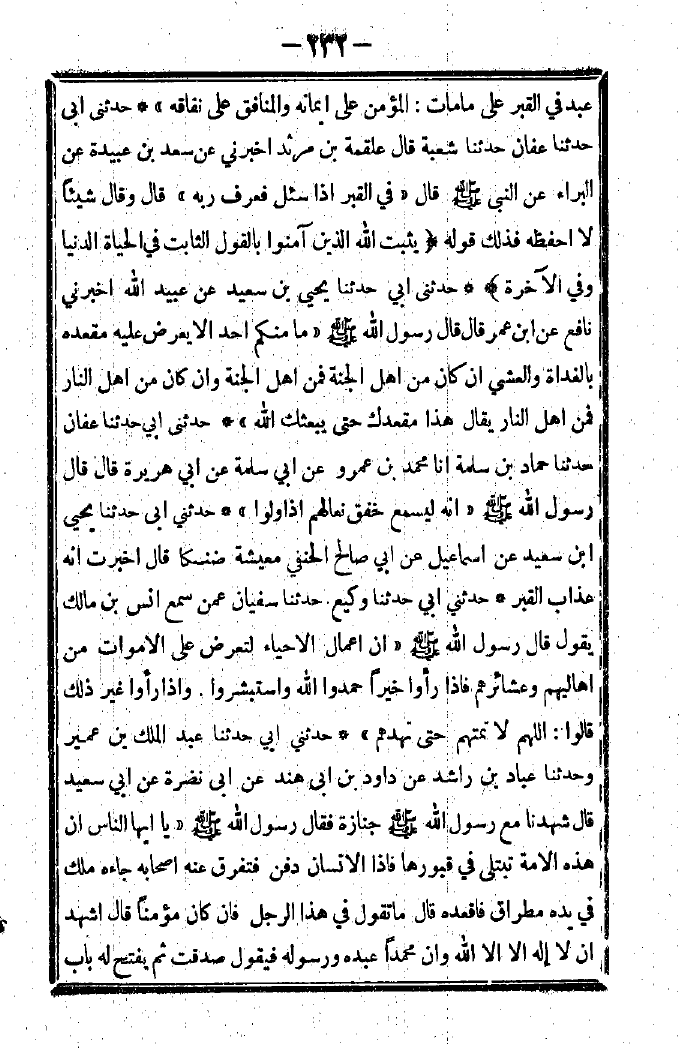 — ٢٣٢ —
عبد في القبر على مامات : المؤمن على ايمانه والمنافق على نفاقه » * حدثنى ابى
حدثنا عفان حدثنا شعبة قال علقمة بن مرثد اخبرني عن سعد بن عبيدة عن
البراء عن النبي ﷺ قال « في القبر اذا سئل فعرف ربه » قال وقال شيئاً
لا احفظه فذلك قوله ﴿ يثبت الله الذين آمنوا بالقول الثابت في الحياة الدنيا
وفي الآخرة ﴾ * حدثنى ابي حدثنا يحيي بن سعيد عن عبيد الله اخبرني
نافع عن ابن عمر قال قال رسول الله ﷺ « ما منكم احد الا يعرض عليه مقعده
بالغداة والعشي ان كان من اهل الجنة فمن اهل الجنة وان كان من اهل النار
فمن اهل النار يقال هذا مقعدك حتى يبعثك الله » * حدثنى ابي حدثنا عفان
حدثنا حماد بن سلمة انا محمد بن عمرو عن ابي سلمة عن ابي هريرة قال قال
رسول الله ﷺ « انه ليسمع خفق نعالهم اذا ولوا » * حدثني ابى حدثنا يحيي
ابن سعيد عن اسماعيل عن ابي صالح الحنفي معيشة ضنكا قال اخبرت انه
عذاب القبر * حدثني ابي حدثنا وكيع حدثنا سفيان عمن سمع انس بن مالك
يقول قال رسول الله ﷺ « ان اعمال الاحياء لتعرض على الاموات من
اهاليهم وعشائرهم فاذا رأوا خيراً حمدوا الله واستبشروا . واذا رأوا غير ذلك
قالوا : اللهم لا تمتهم حتى تهدهم » * حدثني ابي حدثنا عبد الملك بن عمير
وحدثنا عباد بن راشد عن داود بن ابى هند عن ابى نضرة عن ابي سعيد
قال شهدنا مع رسول الله ﷺ جنازة فقال رسول الله ﷺ « يا ايها الناس ان
هذه الامة تبتلى في قبورها فاذا الانسان دفن فتفرق عنه اصحابه جاءه ملك
في يده مطراق فاقعده قال ماتقول في هذا الرجل فان كان مؤمناً قال اشهد
ان لا إله الا الا الله وان محمداً عبده ورسوله فيقول صدقت ثم يفتح له باب